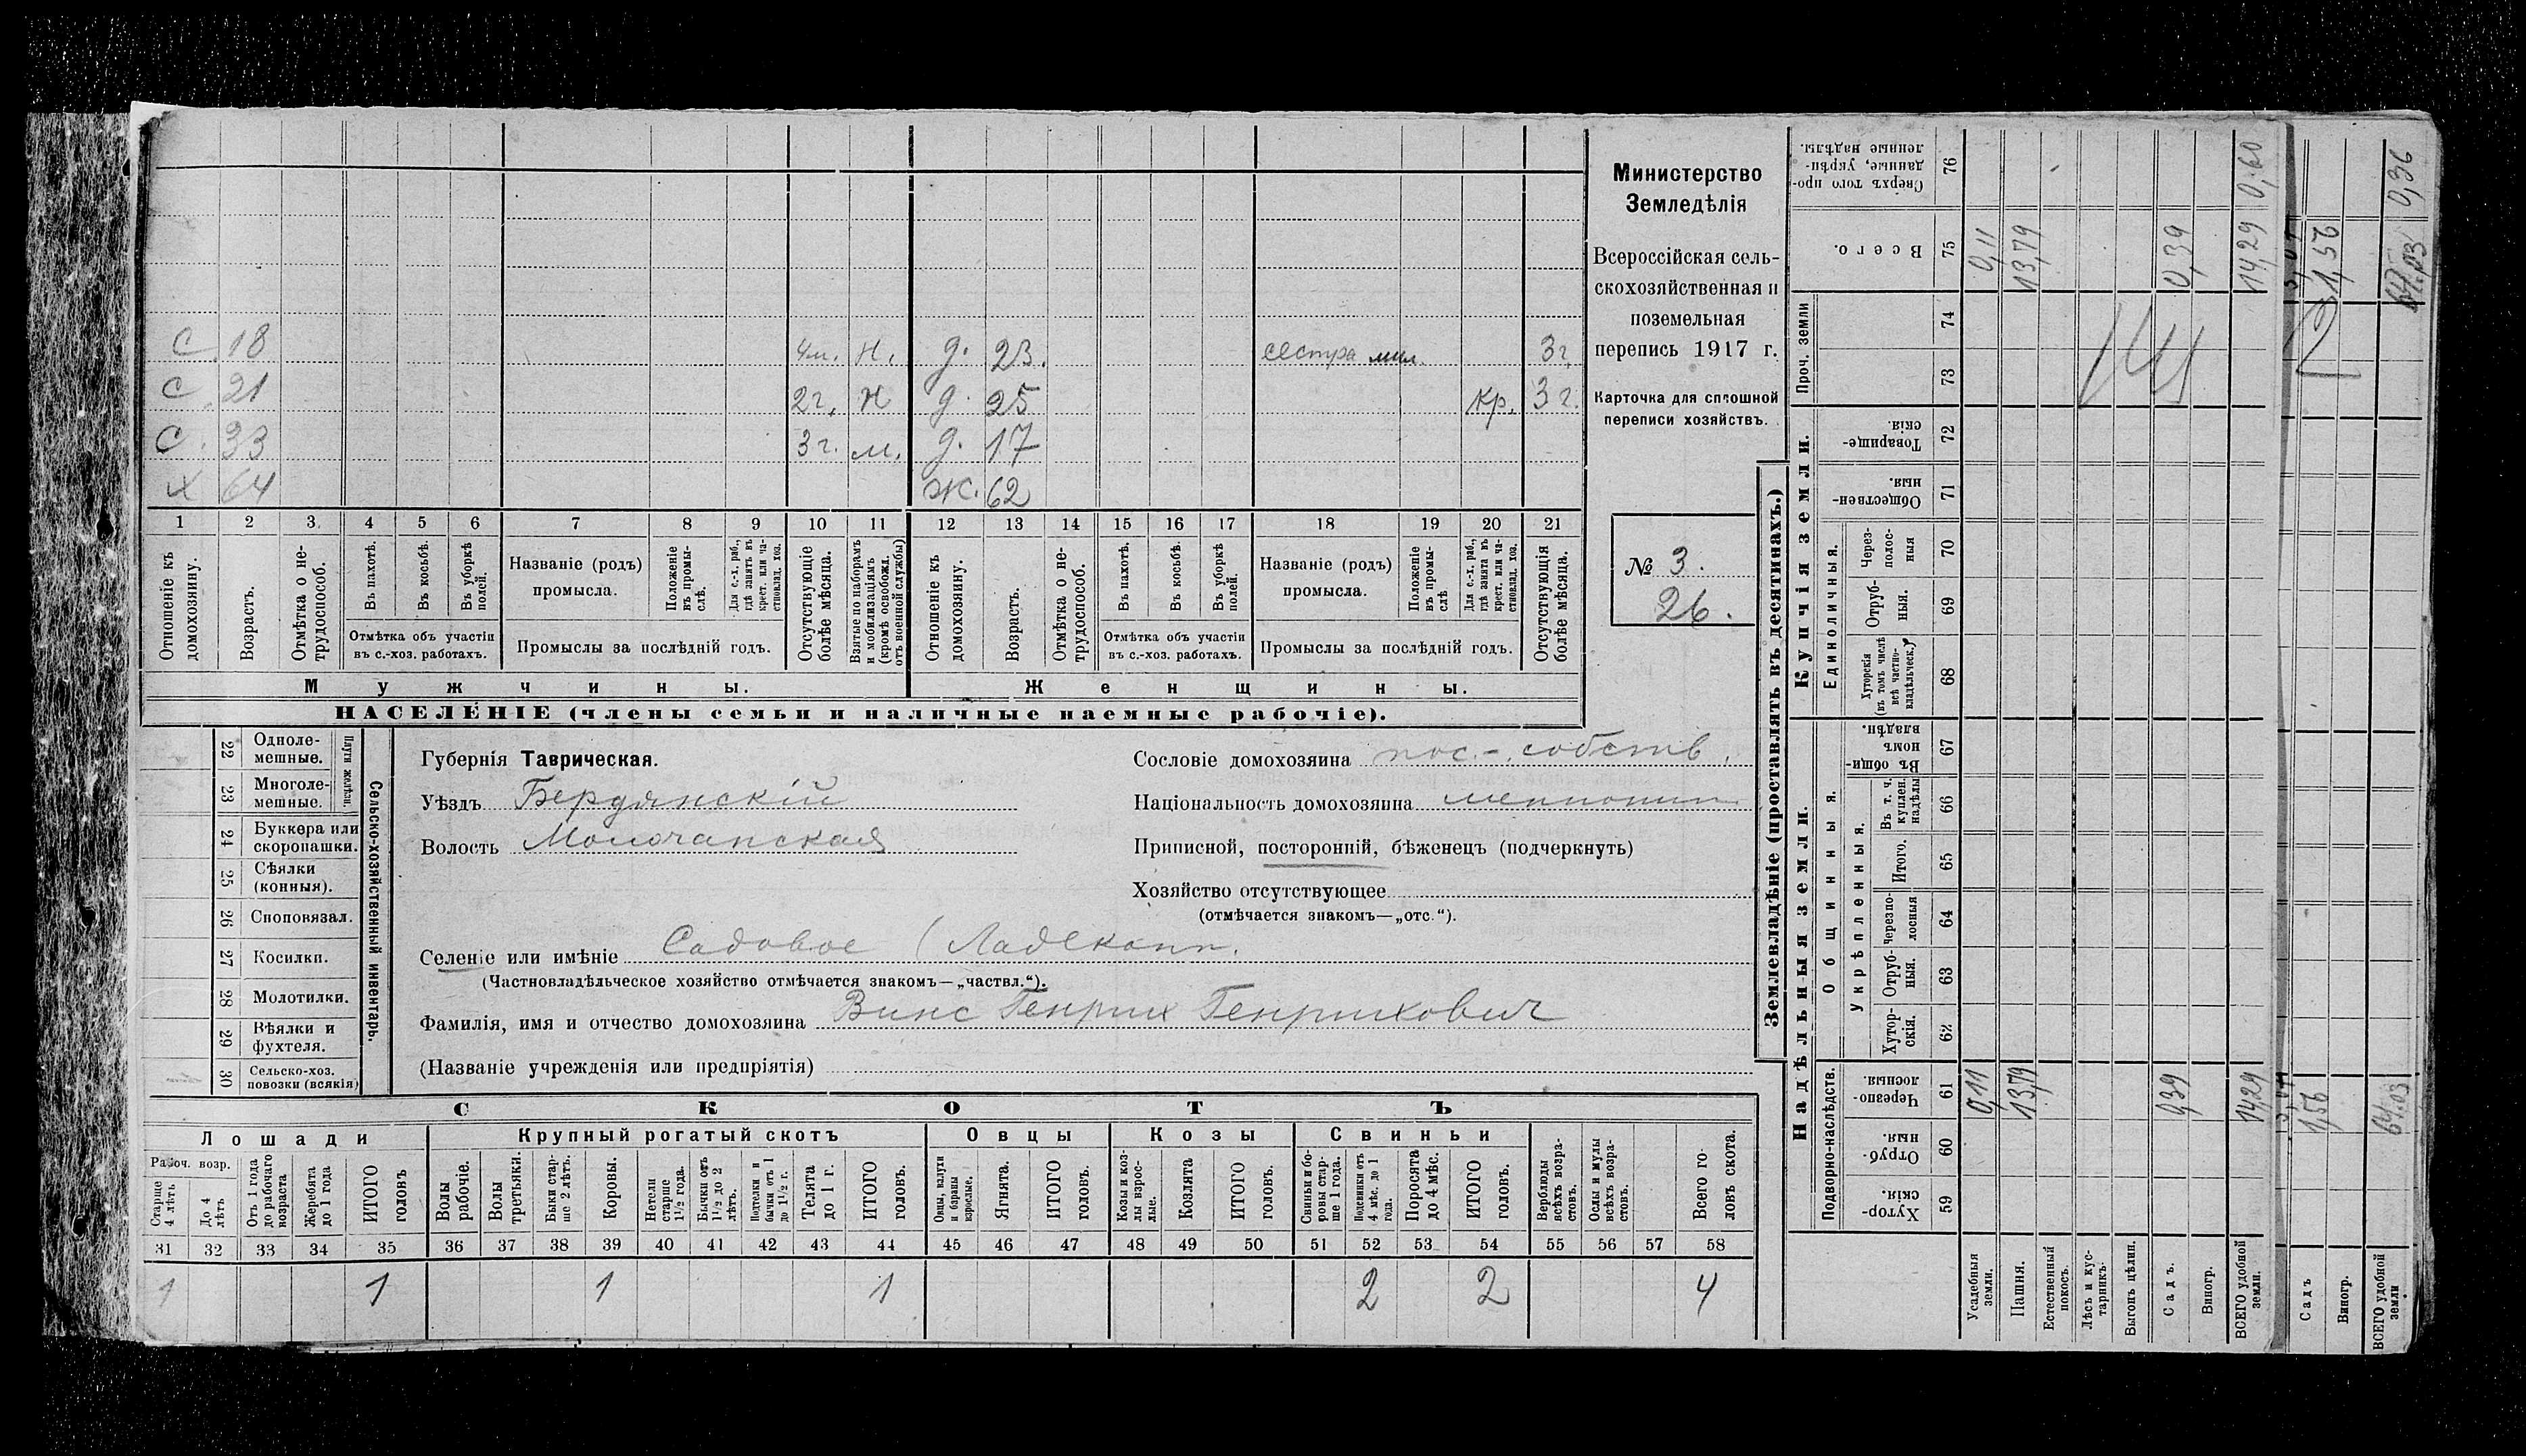 С. 18 4м. Н. д. 23. сестра мил. 3г.
С. 21 2г. Н д. 25 кр. 3г.
С. 33 3г. м. д. 17
Х 64 Ж. 62
1 2 3 4 5 6 7 8 9 10 11 12 13 14 15 16 17 18 19 20 21
Отношеніе къ домохозяину.
Возрастъ.
Отмѣтка о не-трудоспособ.
Въ пахотѣ.
Въ косьбѣ.
Въ уборкѣ полей.
Отмѣтка объ участіи въ с.-хоз. работахъ.
Названіе (родъ) промысла.
Положеніе въ промы-слѣ.
Для с.-х. раб., гдѣ занятъ въ крест. или ча-стновлад. хоз.
Промыслы за послѣдній годъ.
Отсутствующіе болѣе мѣсяца.
Взятые по наборамъ и мобилизаціямъ (кромѣ освобожд. отъ военной службы)
Отношеніе къ домохозяину.
Возрастъ.
Отмѣтка о не-трудоспособ.
Въ пахотѣ.
Въ косьбѣ.
Въ уборкѣ полей.
Отмѣтка объ участіи въ с.-хоз. работахъ.
Названіе (родъ) промысла.
Положеніе въ промы-слѣ
Для с.-х. раб., гдѣ занята въ крест. или ча-стновлад. хоз.
Промыслы за послѣдній годъ.
Отсутствующія болѣе мѣсяца.
Мужчины. Женщины.
НАСЕЛЕНІЕ (члены семьи и наличные наемные рабочіе).
Министерство
Земледѣлія
Всероссійская сель-
скохозяйственная и
поземельная
перепись 1917 г.
Карточка для сплошной
переписи хозяйствъ.
№ 3.
26.
22 Одноле-мешные.
23 Многоле-мешные.
Плуги желѣзн.
24 Буккера или скоропашки.
25 Сѣялки (конныя).
26 Сноповязал.
27 Косилки.
28 Молотилки.
29 Вѣялки и фухтеля.
30 Сельско-хоз. повозки (всякія)
Сельско-хозяйственный инвентарь.
Губернія Таврическая.
Уѣздъ Бердянскій
Волость Молочанская
Сословіе домохозяина пос.-собств.
Національность домохозяина меннонит
Приписной, посторонній, бѣженецъ (подчеркнуть)
Хозяйство отсутствующее
(отмѣчается знакомъ—„отс.“).
Селеніе или имѣніе Садовое (Ладекопп.
(Частновладѣльческое хозяйство отмѣчается знакомъ—„частвл.“).
Фамилія, имя и отчество домохозяина Винс Генрих Генрихович
(Названіе учрежденія или предпріятія)
СКОТЪ
Лошади Крупный рогатый скотъ Овцы Козы Свиньи
Рабоч. возр.
Старше 4 лѣтъ
До 4 лѣтъ
Отъ 1 года до рабочаго возраста
Жеребята до 1 года
ИТОГО головъ
Волы рабочіе.
Волы третьяки.
Быки стар-ше 2 лѣтъ.
Коровы.
Нетели старше 1½ года.
Бычки отъ 1½ до 2 лѣтъ.
Подтелки и бычки отъ 1 до 1½ г.
Телята до 1 г.
ИТОГО головъ.
Овцы, валухи и бараны взрослые.
Ягнята.
ИТОГО головъ.
Козы и коз-лы взрос-лые.
Козлята
ИТОГО головъ.
Свиньи и бо-ровы стар-ше 1 года.
Подсвинки отъ 4 мѣс. до 1 года.
Поросята до 4 мѣс.
ИТОГО головъ.
Верблюды всѣхъ возра-стовъ.
Ослы и мулы всѣхъ возра-стовъ.
Всего го-ловъ скота.
31 32 33 34 35 36 37 38 39 40 41 42 43 44 45 46 47 48 49 50 51 52 53 54 55 56 57 58
1 1 1 1 2 2 4
Землевладѣніе (проставлять въ десятинахъ.)
Надѣльныя земли. Купчія земли. Проч. земли
Подворно-наслѣдств. Общинныя. Укрѣпленныя. Единоличныя.
Хутор-скія. 59
Отруб-ныя. 60
Черезпо-лосныя. 61
Хутор-скія. 62
Отруб-ныя. 63
Черезпо-лосныя 64
Итого. 65
Въ т. ч. куплен. надѣлы 66
Въ общин-номъ владѣн. 67
Хуторскія (въ томъ числѣ всѣ частно-владѣльческ.) 68
Отруб-ныя. 69
Через-полос-ныя 70
Обществен-ныя. 71
Товарище-скія. 72
73
74
Всего. 75
Сверхъ того про-данные, укрѣп-ленные надѣлы. 76
Усадебныя земли. 0,11 0,11
Пашня. 13,79 13,79
Естественный покосъ.
Лѣсъ и кус-тарникъ.
Выгонъ цѣлин.
Садъ. 0,39 0,39
Виногр.
ВСЕГО удобной земли. 14,29 14,29 0,60
Садъ 1,56 1,56
Виногр.
ВСЕГО удобной земли 64.03 0,36